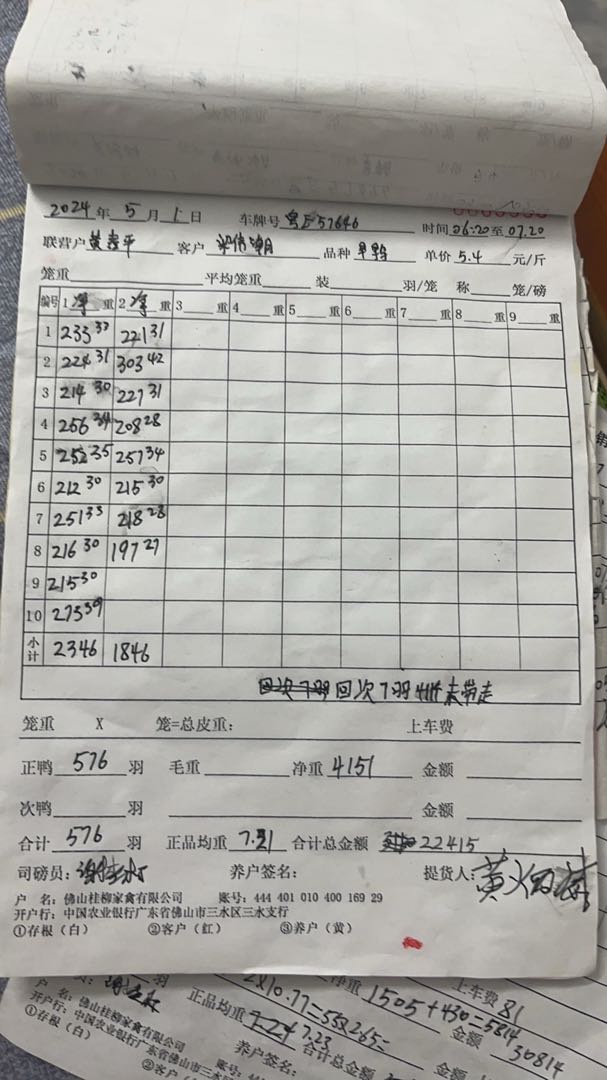 2024年5月1日 车牌号 粤E57646 时间06:20至07.20
联营户 黄寿平 客户 品种 旱鸭 单价 5.4 元/斤
笼重 平均笼重 装 羽/笼 称 笼/磅
编号 1净重 2净重 3重 4重 5重 6重 7重 8重 9重
1 233 221 31
2 224 31 303 42
3 214 30 227 31
4 256 34 208 28
5 252 35 257 34
6 212 30 215 30
7 251 33 218 28
8 216 30 197 27
9 215 30
10 273 39
小计 2346 1846
回次7羽 回次7羽 未带走
笼重 X 笼=总皮重: 上车费
正鸭 576 羽 毛重 净重 4151 金额
次鸭 羽 金额
合计 576 羽 正品均重 7.21 合计总金额 22415
司磅员: 养户签名: 提货人:
户 名: 佛山桂柳家禽有限公司 账号: 444 401 010 400 169 29
开户行: 中国农业银行广东省佛山市三水区三水支行
①存根（白） ②客户（红） ③养户（黄）
净重 1505+430=5814 上车费 81
2×10.77=55×265= 金额 30814
羽 正品均重 7.24 7.23 合计总金额
户 名: 佛山桂柳家禽有限公司 养户签名:
开户行: 中国农业银行广东省佛山市三水
①存根（白） ②客户